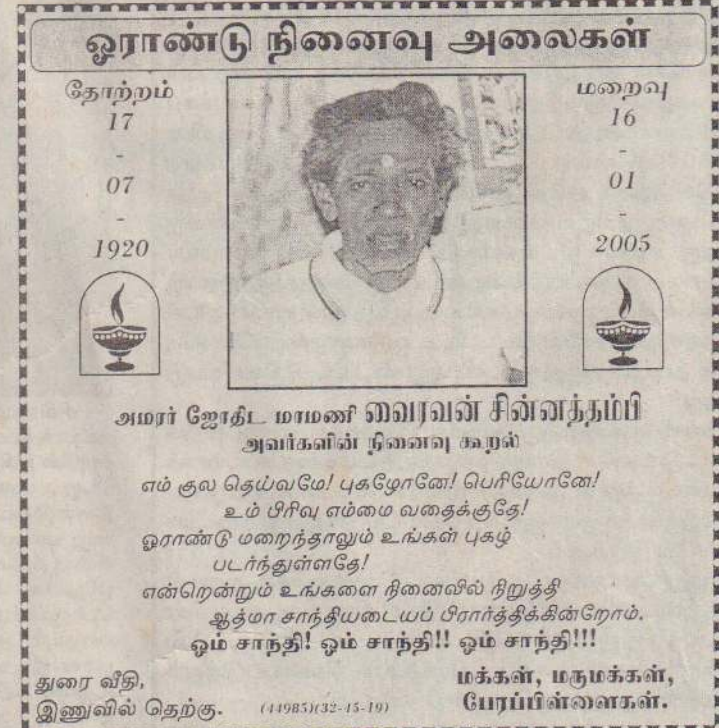 ஓராண்டு நினைவு அலைகள்
தோற்றம்
17
-
07
-
1920
மறைவு
16
-
01
-
2005
அமரர் ஜோதிட மாமணி வைரவன் சின்னத்தம்பி
அவர்களின் நினைவு கூறல்
எம் குல தெய்வமே! புகழோனே! பெரியோனே!
உம் பிரிவு எம்மை வதைக்குதே!
ஓராண்டு மறைந்தாலும் உங்கள் புகழ்
படர்ந்துள்ளதே!
என்றென்றும் உங்களை நினைவில் நிறுத்தி
ஆத்மா சாந்தியடையப் பிரார்த்திக்கின்றோம்.
ஓம் சாந்தி! ஓம் சாந்தி!! ஓம் சாந்தி!!!
துரை வீதி,
இணுவில் தெற்கு.
(44985)(32-45-19)
மக்கள், மருமக்கள்,
பேரப்பிள்ளைகள்.